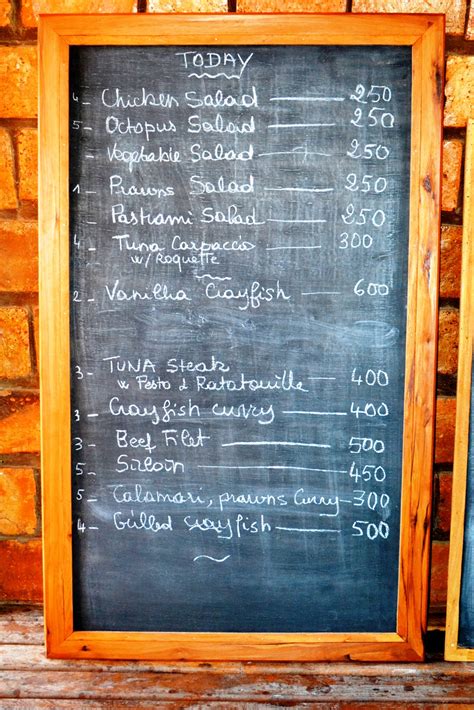 TODAY
4 - Chicken Salad 250
5 - Octopus Salad 250
- Vegetable Salad 250
1 - Prawns Salad 250
Pastrami Salad 250
4 - Tuna Carpacco 300
w/ Roquette
2 - Vanilla Crayfish 600
3 - TUNA Steak
w Pesto & Ratatouille 400
3 - Crayfish curry 400
3 - Beef Filet 500
5 - Saloin 450
5 - Calamari, prawns Curry 300
4 - Grilled Crayfish 500